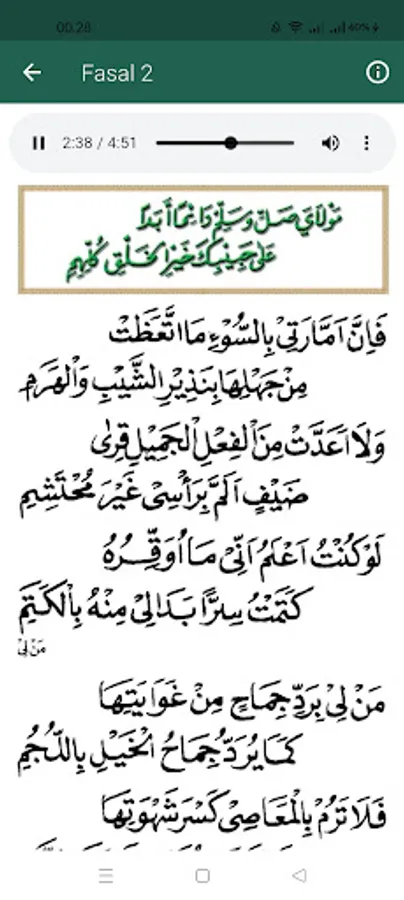 00.28
40%
Fasal 2
2:38 / 4:51
مَوْلَايَ صَلِّ وَسَلِّمْ دَائِمًا أَبَدًا
عَلَى حَبِيْبِكَ خَيْرِ الْخَلْقِ كُلِّهِمِ
فَاِنَّ اَمَّارَتِيْ بِالسُّوْءِ مَا اتَّعَظَتْ
مِنْ جَهْلِهَا بِنَذِيْرِ الشَّيْبِ وَالْهَرَمِ
وَلَا اَعَدَّتْ مِنَ الْفِعْلِ الْجَمِيْلِ قِرٰى
ضَيْفٍ اَلَمَّ بِرَأْسِيْ غَيْرَ مُحْتَشِمِ
لَوْ كُنْتُ اَعْلَمُ اَنِّيْ مَا اُوَقِّرُهُ
كَتَمْتُ سِرًّا بَدَا لِيْ مِنْهُ بِالْكَتَمِ
مَنْ لِيْ
مَنْ لِيْ بِرَدِّ جِمَاحٍ مِنْ غَوَايَتِهَا
كَمَا يُرَدُّ جِمَاحُ الْخَيْلِ بِاللُّجُمِ
فَلَا تَرُمْ بِالْمَعَاصِيْ كَسْرَ شَهْوَتِهَا